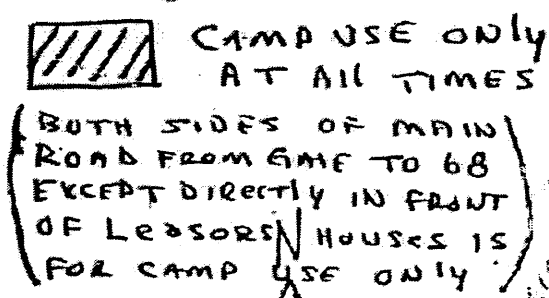 CAMP USE ONLY
AT All TIMES
(BOTH SIDES OF MAIN
ROAD FROM GATE TO 68
EXCEPT DIRECTLY IN FRONT
OF LEASORS HOUSES IS
FOR CAMP USE ONLY)